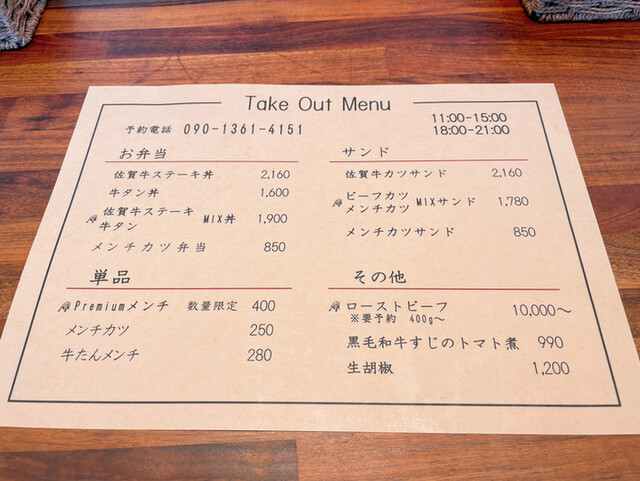 Take Out Menu
予約電話 090-1361-4151
11:00-15:00
18:00-21:00
お弁当
佐賀牛ステーキ丼 2,160
牛タン丼 1,600
佐賀牛ステーキ
牛タン MIX丼 1,900
メンチカツ弁当 850
サンド
佐賀牛カツサンド 2,160
ビーフカツ
メンチカツ MIXサンド 1,780
メンチカツサンド 850
単品
Premiumメンチ 数量限定 400
メンチカツ 250
牛たんメンチ 280
その他
ローストビーフ 10,000〜
※要予約 400g〜
黒毛和牛すじのトマト煮 990
生胡椒 1,200